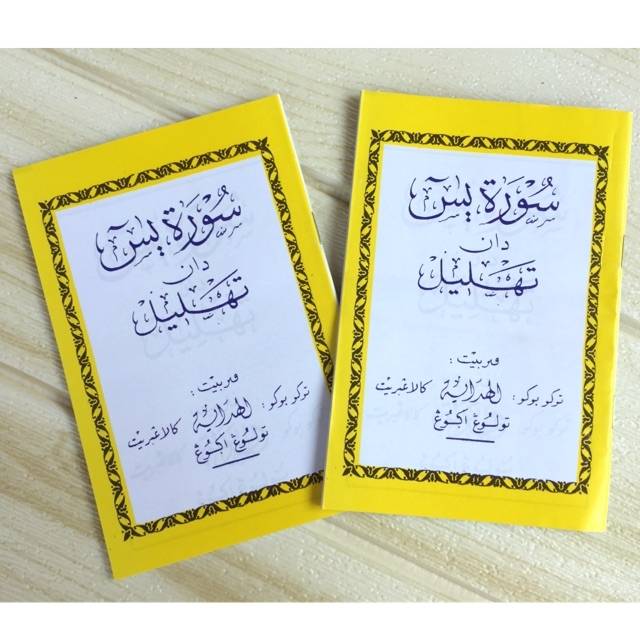 سُوْرَة يسٓ
دان
تَهْلِيْل
فنربيت :
توكو بوكو : الهداية كالاغبريت
تولوڠ اكوڠ
سُوْرَة يسٓ
دان
تَهْلِيْل
فنربيت :
توكو بوكو : الهداية كالاغبريت
تولوڠ اكوڠ